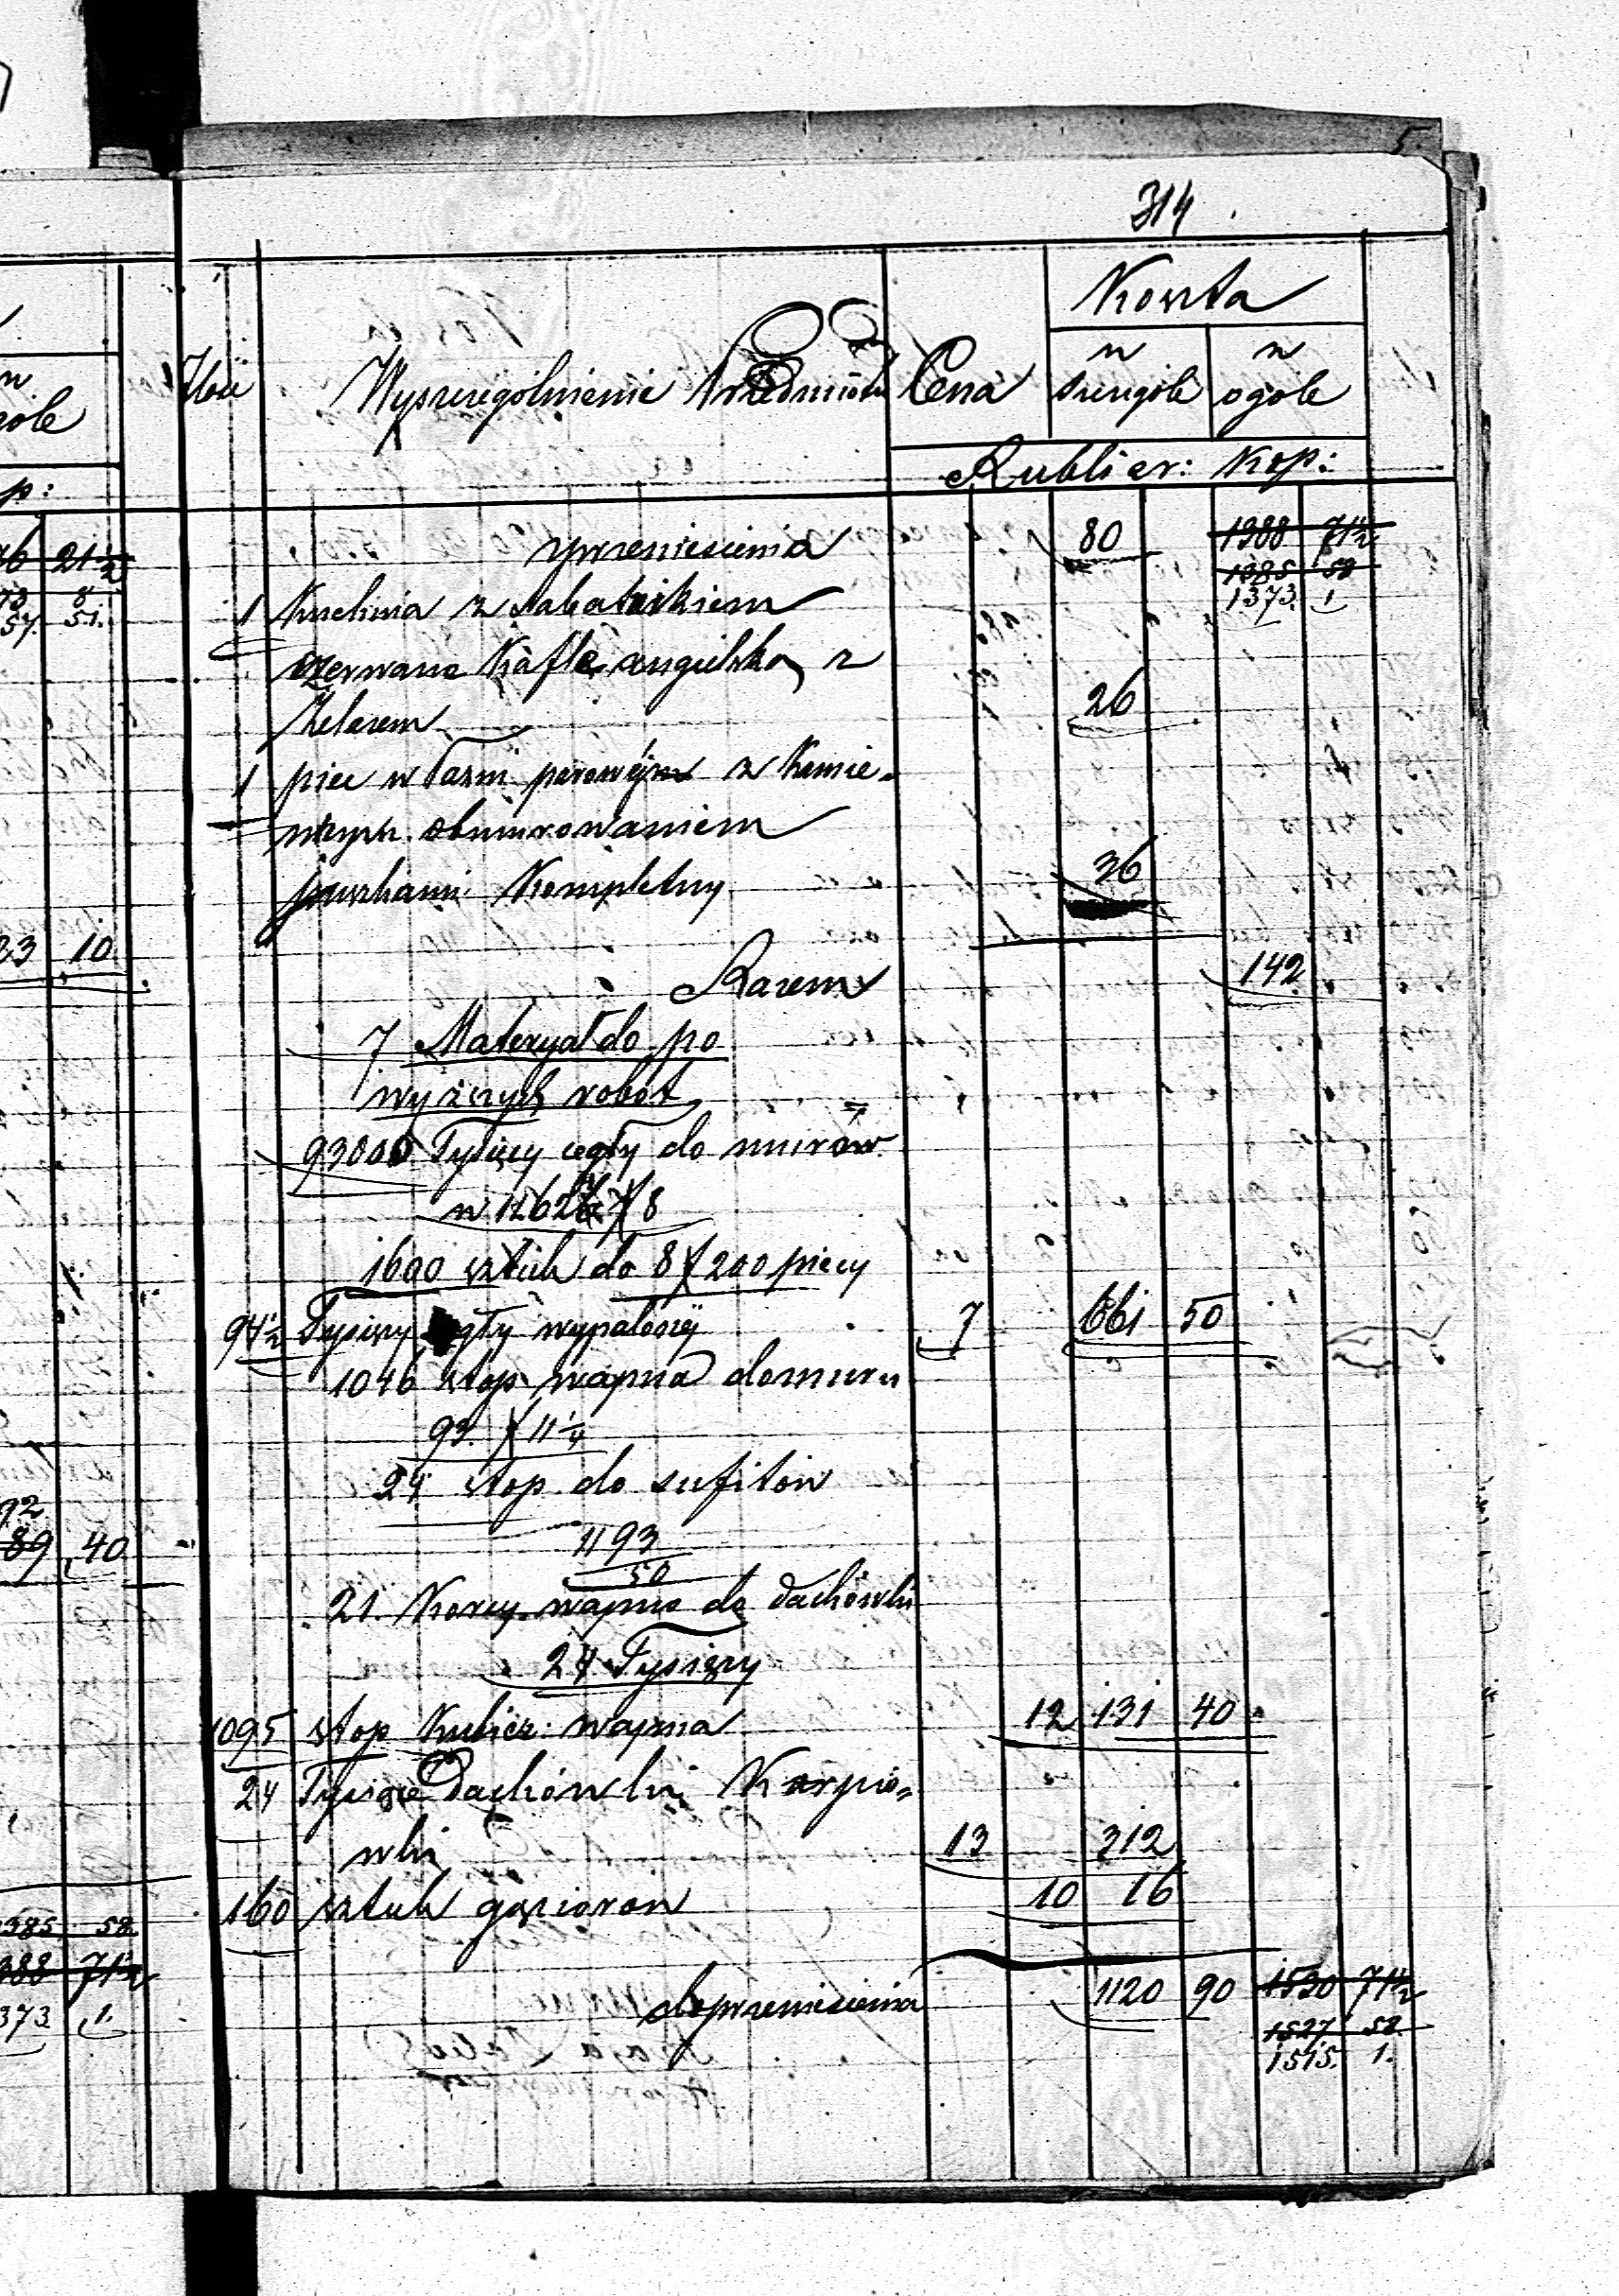 5.
314
Ilość Wyszczególnienie Przedmiotu Cena Koszta
w szczególe w ogóle
Rubli sr: Kop:
zprzeniesienia 80 1388 71½
1385 58
1 Kuchnia z sabatnikiem 1373. 1.
czerwone Kafle angielska z
Żelazem 26
1 piec w łaźni parowéj z Kamie=
obmurowaniem
Kompletny 36
Razem 142
7 Materyał do po
wyższych robót
93000 Tysięcy cegły do murów
1600 sztuk do 8 / 200 piecy
94½ Tysięcy cegły wypalonéj 7 661 50
1046 stop wapna do muru
93. / 11¼
24 stop do sufitów
1193
50
21. Korcy wapna do dachówki
24 Tysięcy
1095 stop Kubicz: wapna 12 131 40
24 Tysiące Dachówki Karpió=
wki 13 312
160 sztuk gąsiorów 10 16
do przeniesienia 1120 90 1530 71½
1527 58
1515. 1.
21½
51.
23 10
92
89 40
1385 58
1388 71½
1373 1.